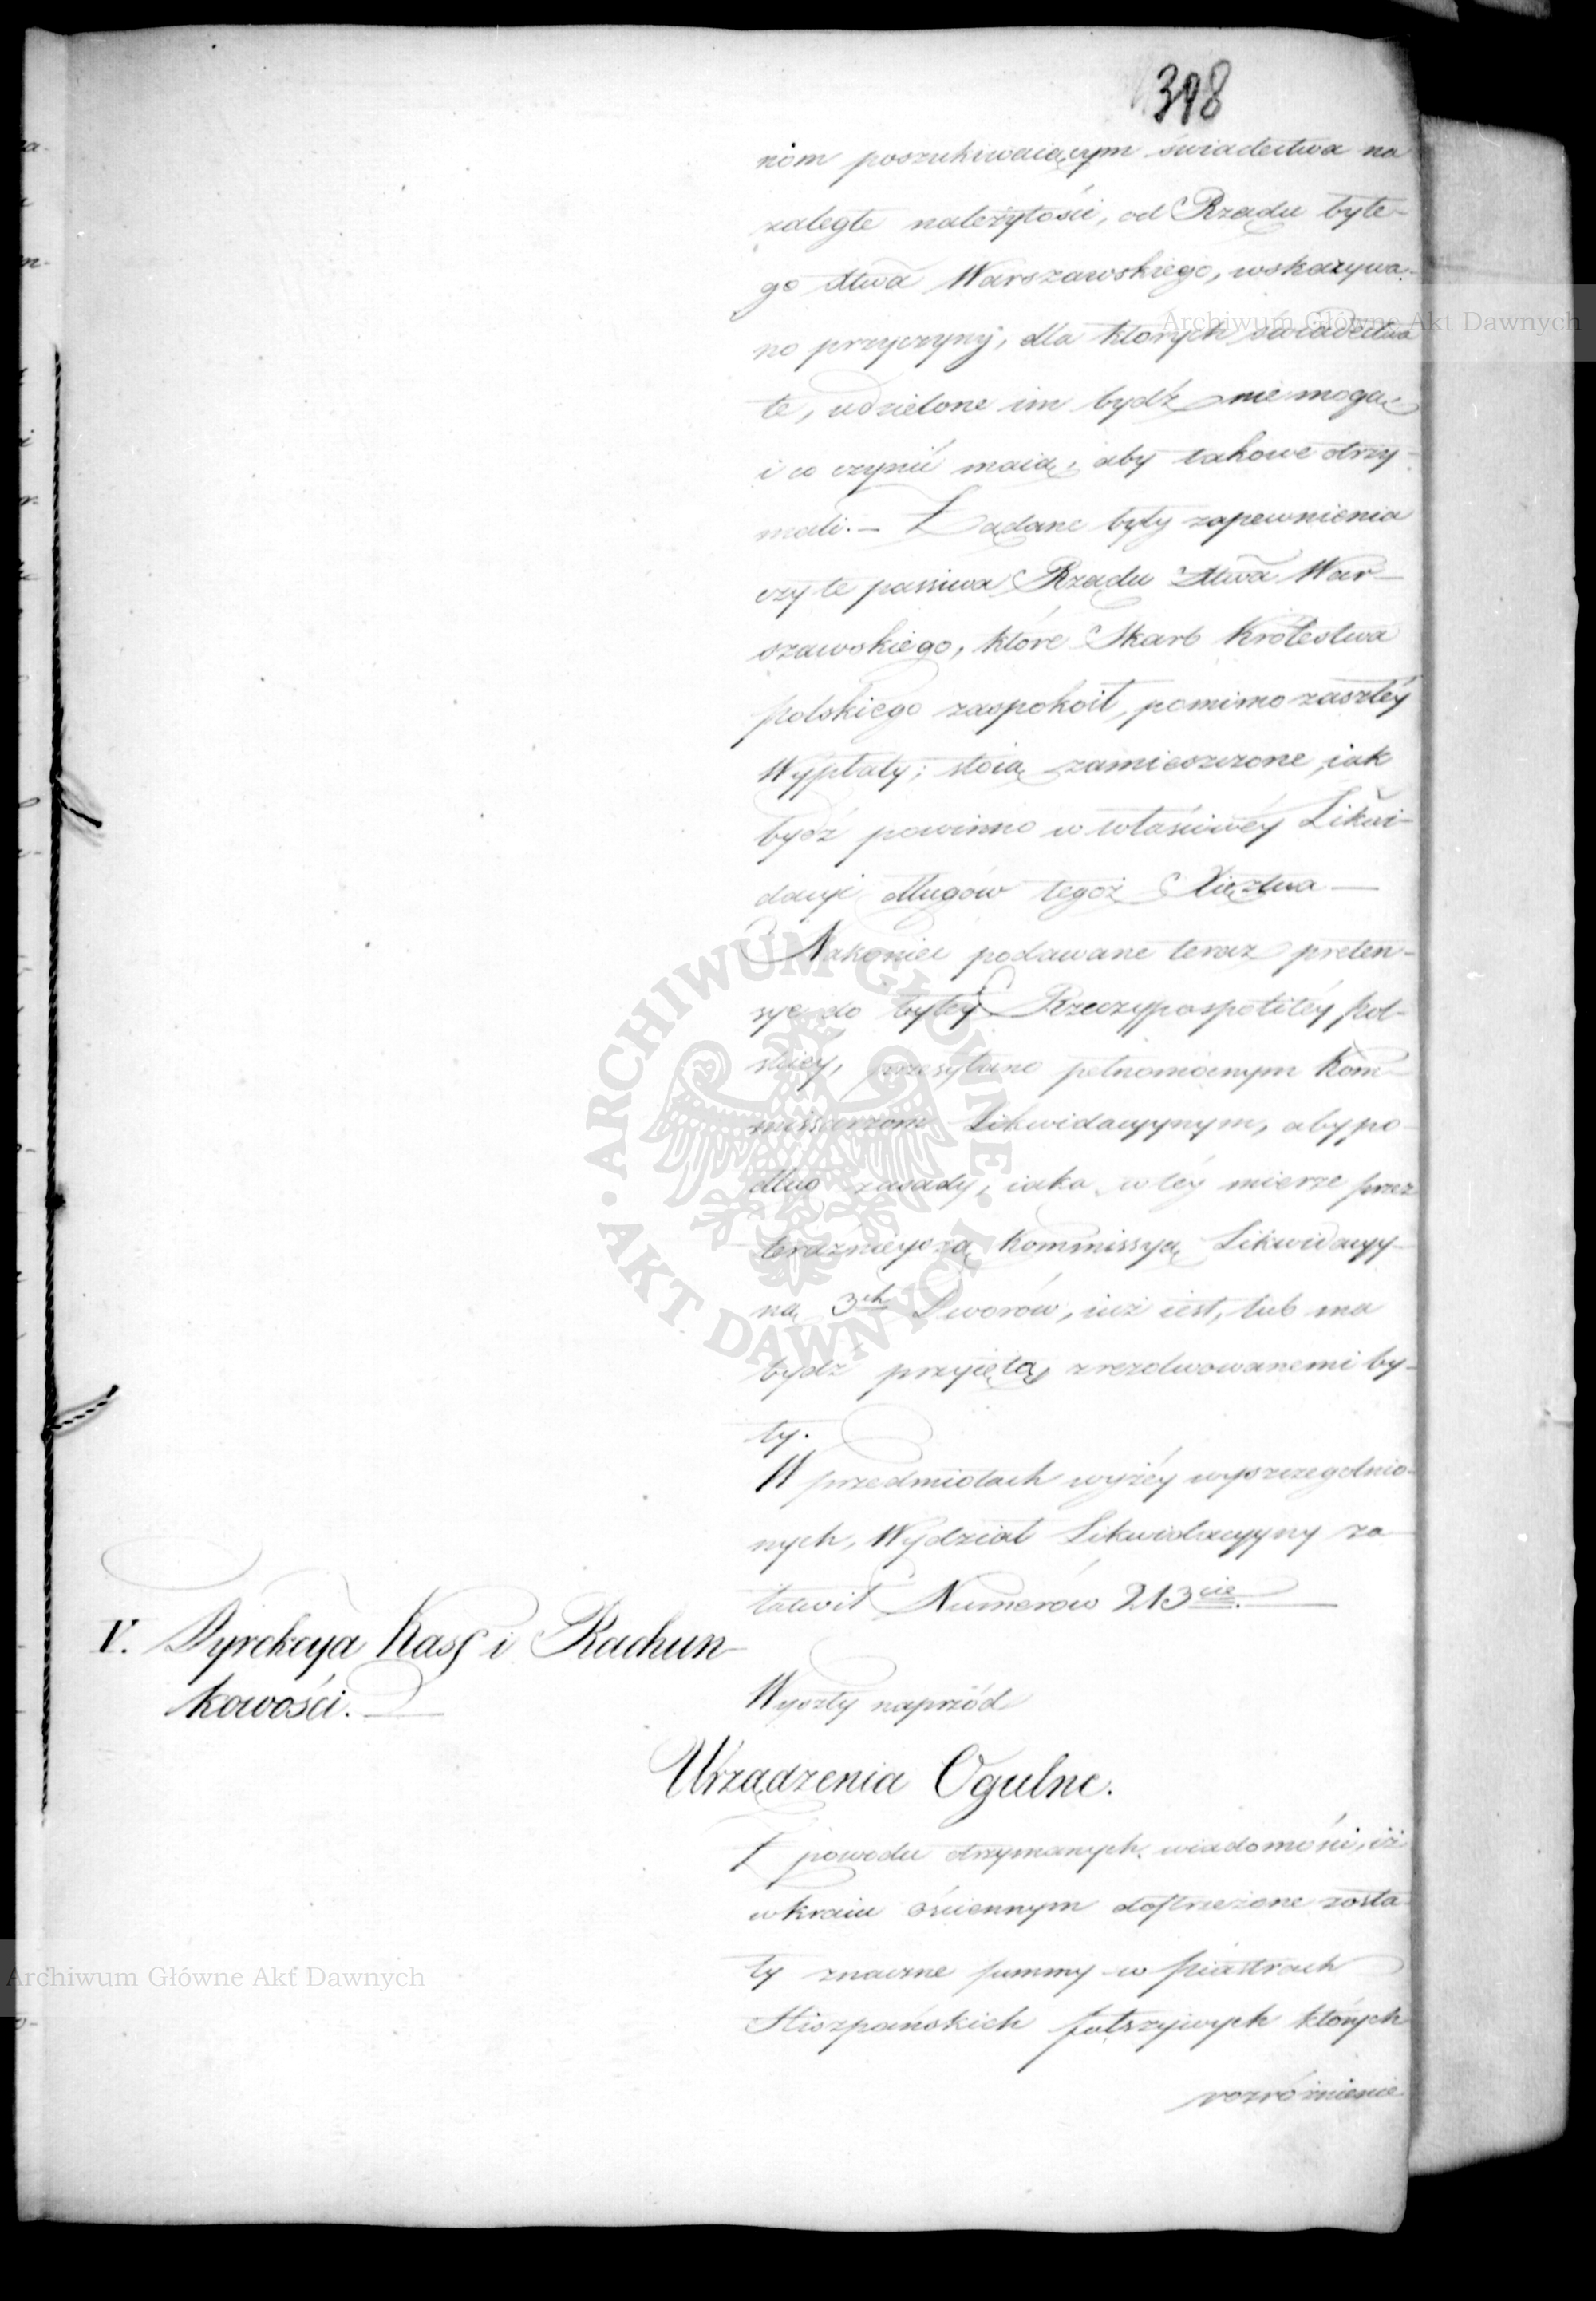 398
nóm poszukiwaiącym świadectwa na
zaległe należytości, od Rządu byłe-
go Xtwa Warszawskiego, wskazywa-
no przyczyny, dla których świadectwa
te, udzielone im bydź nie mogą
i co czynić maią, aby takowe otrzy-
mali. — Żądane były zapewnienia
czy te passiwa Rządu Xtwa War-
szawskiego, które Skarb Królestwa
Polskiego zaspokoił, pomimo zaszłéy
Wypłaty; stoią zamieszczone, iak
bydź powinno w właściwéy Likwi-
dacyi długów tegoż Xięztwa —
Nakoniec podawane teraz preten-
sye do byłéy Rzeczypospolitéy Pol-
skiéy, przesyłano pełnomocnym Kom-
missarzom Likwidacyynym, aby po-
dług zasady, iaka w téy mierze przez
teraznieyszą Kommissyą Likwidacyy-
ną 3ch Dworów, iuż iest, lub ma
bydź przyięta, zrezolwowanemi by-
ły.
W przedmiotach wyżéy wyszczególnio-
nych, Wydział Likwidacyyny za-
łatwił Numerów 213cie.
V. Dyrekcya Kass i Rachun-
kowości.
Wyszły naprzód
Urządzenia Ogulne.
Z powodu otrzymanych wiadomości, iż
w kraiu ościennym dostrzeżone zosta-
ły znaczne summy w Piastrach
Hiszpańskich fałszywych których
rozróżnienie
Archiwum Główne Akt Dawnych
Archiwum Główne Akt Dawnych
ARCHIWUM GŁÓWNE • AKT DAWNYCH •